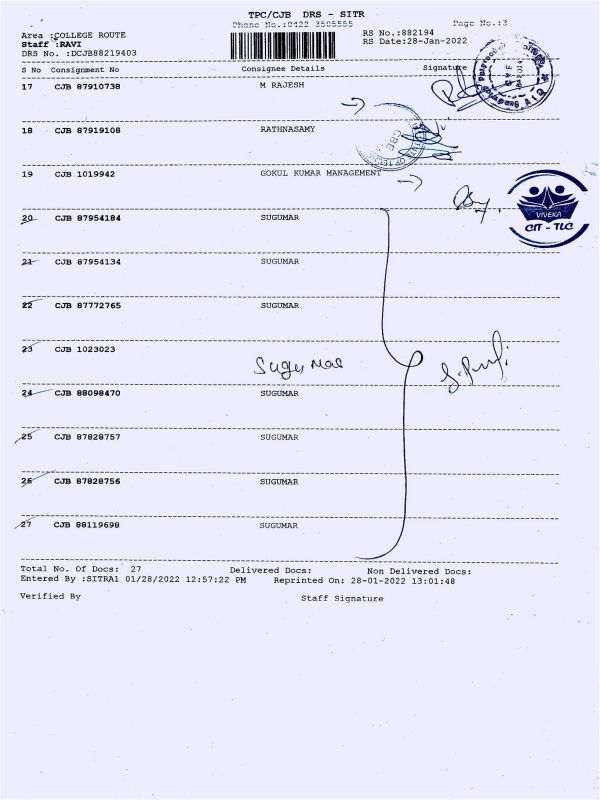 TPC/CJB DRS - SITR
Phone No.:0422 3505555
Page No.:3
Area :COLLEGE ROUTE
Staff :RAVI
DRS No. :DCJB88219403
RS No.:882194
RS Date:28-Jan-2022
S No Consignment No Consignee Details Signature
17 CJB 87910738 M RAJESH
18 CJB 87919108 RATHNASAMY
19 CJB 1019942 GOKUL KUMAR MANAGEMENT
VIVEKA
CIT - TLC
20 CJB 87954184 SUGUMAR
21 CJB 87954134 SUGUMAR
22 CJB 87772765 SUGUMAR
23 CJB 1023023
Sugumar
24 CJB 88098470 SUGUMAR
25 CJB 87828757 SUGUMAR
26 CJB 87828756 SUGUMAR
27 CJB 88119698 SUGUMAR
Total No. Of Docs: 27 Delivered Docs: Non Delivered Docs:
Entered By :SITRA1 01/28/2022 12:57:22 PM Reprinted On: 28-01-2022 13:01:48
Verified By Staff Signature